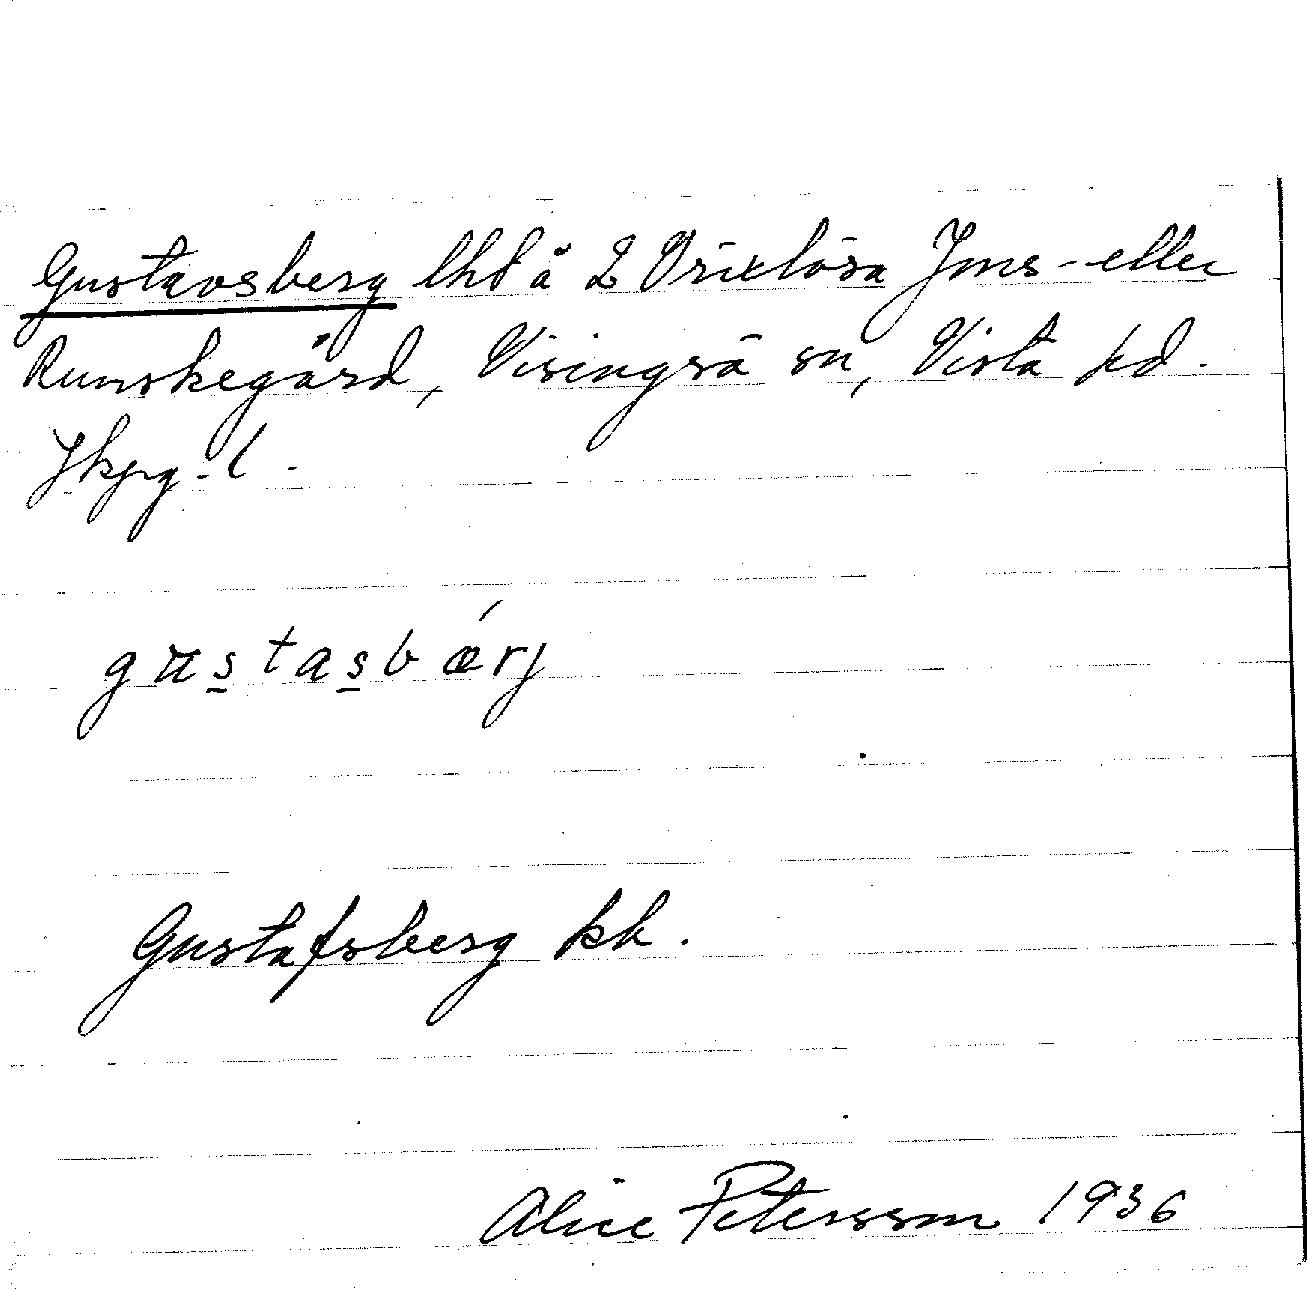 Gustavsberg lht å 2 Vrixlösa Jons- eller
Runskegård, Visingsö sn, Vista hd.
Jkpg. l.
gustasbǽrj
Gustafsberg kk.
Alice Petersson 1936